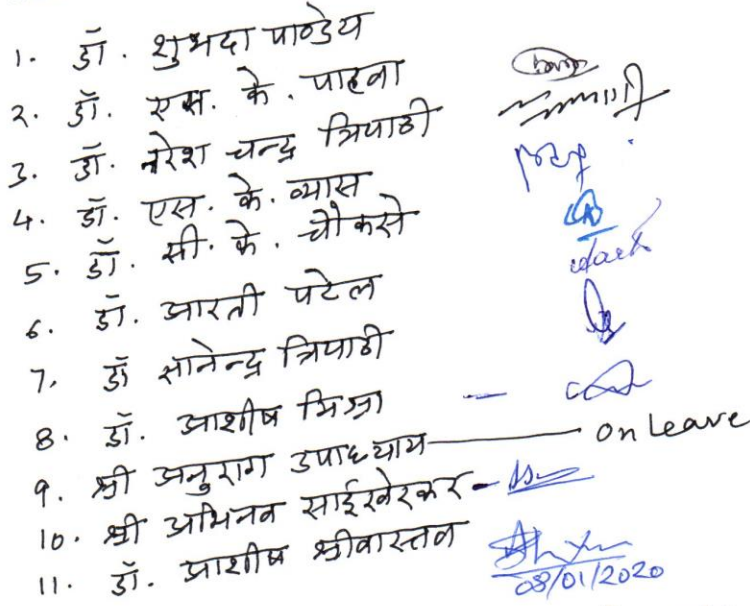 1. डॉ. शुभदा पाण्डेय
2. डॉ. एस. के. पाहवा
3. डॉ. नरेश चन्द्र त्रिपाठी
4. डॉ. एस. के. व्यास
5. डॉ. सी. के. चौकसे
6. डॉ. आरती पटेल
7. डॉ ज्ञानेन्द्र त्रिपाठी
8. डॉ. आशीष मिश्रा -
9. श्री अनुराग उपाध्याय — on Leave
10. श्री अभिनव साईखेरकर -
11. डॉ. आशीष श्रीवास्तव
08/01/2020